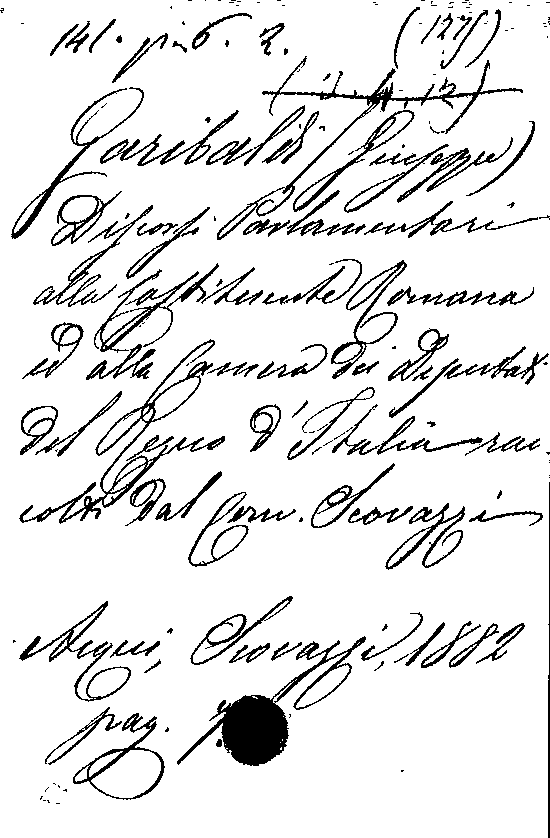 141. più 6. 2. (127)
Garibaldi (Giuseppe)
Discorsi Parlamentari
alla Costituente Romana
ed alla Camera dei Deputati
del Regno d'Italia rac-
colti dal Com. Scovazzi
Acqui, Scovazzi, 1882
pag.